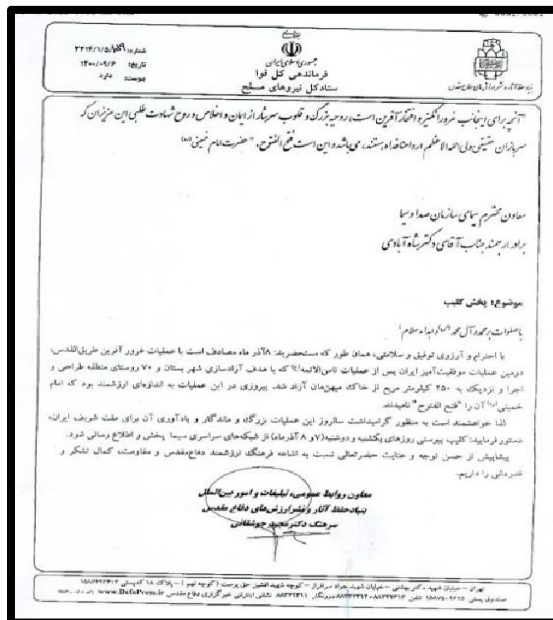 جمهوری اسلامی ایران
فرماندهی کل قوا
ستاد کل نیروهای مسلح
تاریخ: ۱۴۰۰/۰۹/۶
پیوست: دارد
آنچه برای اینجانب غرورانگیز و افتخارآفرین است، روحیه بزرگ و قلوب سرشار از ایمان و اخلاص و روح شهادت طلبی این عزیزان که
سربازان حقیقی ولی الله الاعظم ارواحنا فداه هستند، می باشد و این است فتح الفتوح. "حضرت امام خمینی (ره)
معاون محترم سیمای سازمان صدا و سیما
برادر ارجمند جناب آقای دکتر شاه آبادی
موضوع: پخش کلیپ
با صلوات بر محمد و آل محمد
با احترام و آرزوی توفیق و سلامتی، همان طور که مستحضرید: ۸آذر ماه مصادف است با عملیات غرور آفرین طریق‌القدس،
دومین عملیات موفقیت‌آمیز ایران پس از عملیات ثامن‌الائمه(ع) که با هدف آزادسازی شهر بستان و ۷۰ روستای منطقه طراحی و
اجرا و نزدیک به ۲۵۰ کیلومتر مربع از خاک میهن‌مان آزاد شد. پیروزی در این عملیات به اندازه‌ای ارزشمند بود که امام
خمینی(ره) آن را "فتح الفتوح" نامیدند.
لذا خواهشمند است به منظور گرامیداشت سالروز این عملیات بزرگ و ماندگار و یادآوری آن برای ملت شریف ایران،
دستور فرمایید: کلیپ پیوستی روزهای یکشنبه و دوشنبه(۷و ۸ آذرماه) از شبکه‌های سراسری سیما پخش و اطلاع رسانی شود.
پیشاپیش از حسن توجه و عنایت حضرتعالی نسبت به اشاعه فرهنگ ارزشمند دفاع‌مقدس و مقاومت، کمال تشکر و
قدردانی را داریم.
معاون روابط عمومی، تبلیغات و امور بین‌الملل
بنیاد حفظ آثار و نشر ارزش‌های دفاع مقدس
سرهنگ دکتر مجید
تهران - خیابان شهید دکتر بهشتی - خیابان شهید جواد سرافراز - کوچه شهید افشین حق پرست (کوچه نهم) - پلاک ۱۸
www.DefaPress.ir